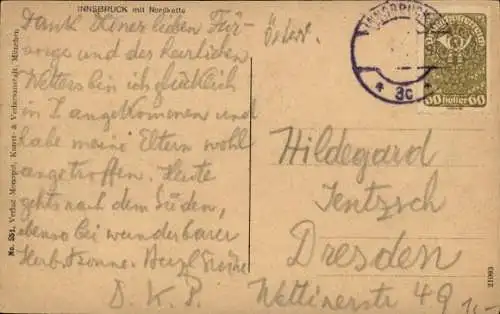 INNSBRUCK mit Nordkette
Dank Deiner lieben Für-
sorge und des herrlichen
Wetters bin ich glücklich
in I. angekommen und
habe meine Eltern wohl
angetroffen. Heute
gehts nach dem Süden,
ebenso bei wunderbarer
Herbstsonne. Herzl. Grüße
D. K. P.
Österr.
INNSBRUCK
* 3c *
60 heller 60
Hildegard
Jentzsch
Dresden
Wettinerstr 49
No. 251. Verlag Monopol, Kunst- & Verlagsanstalt, München.
21093